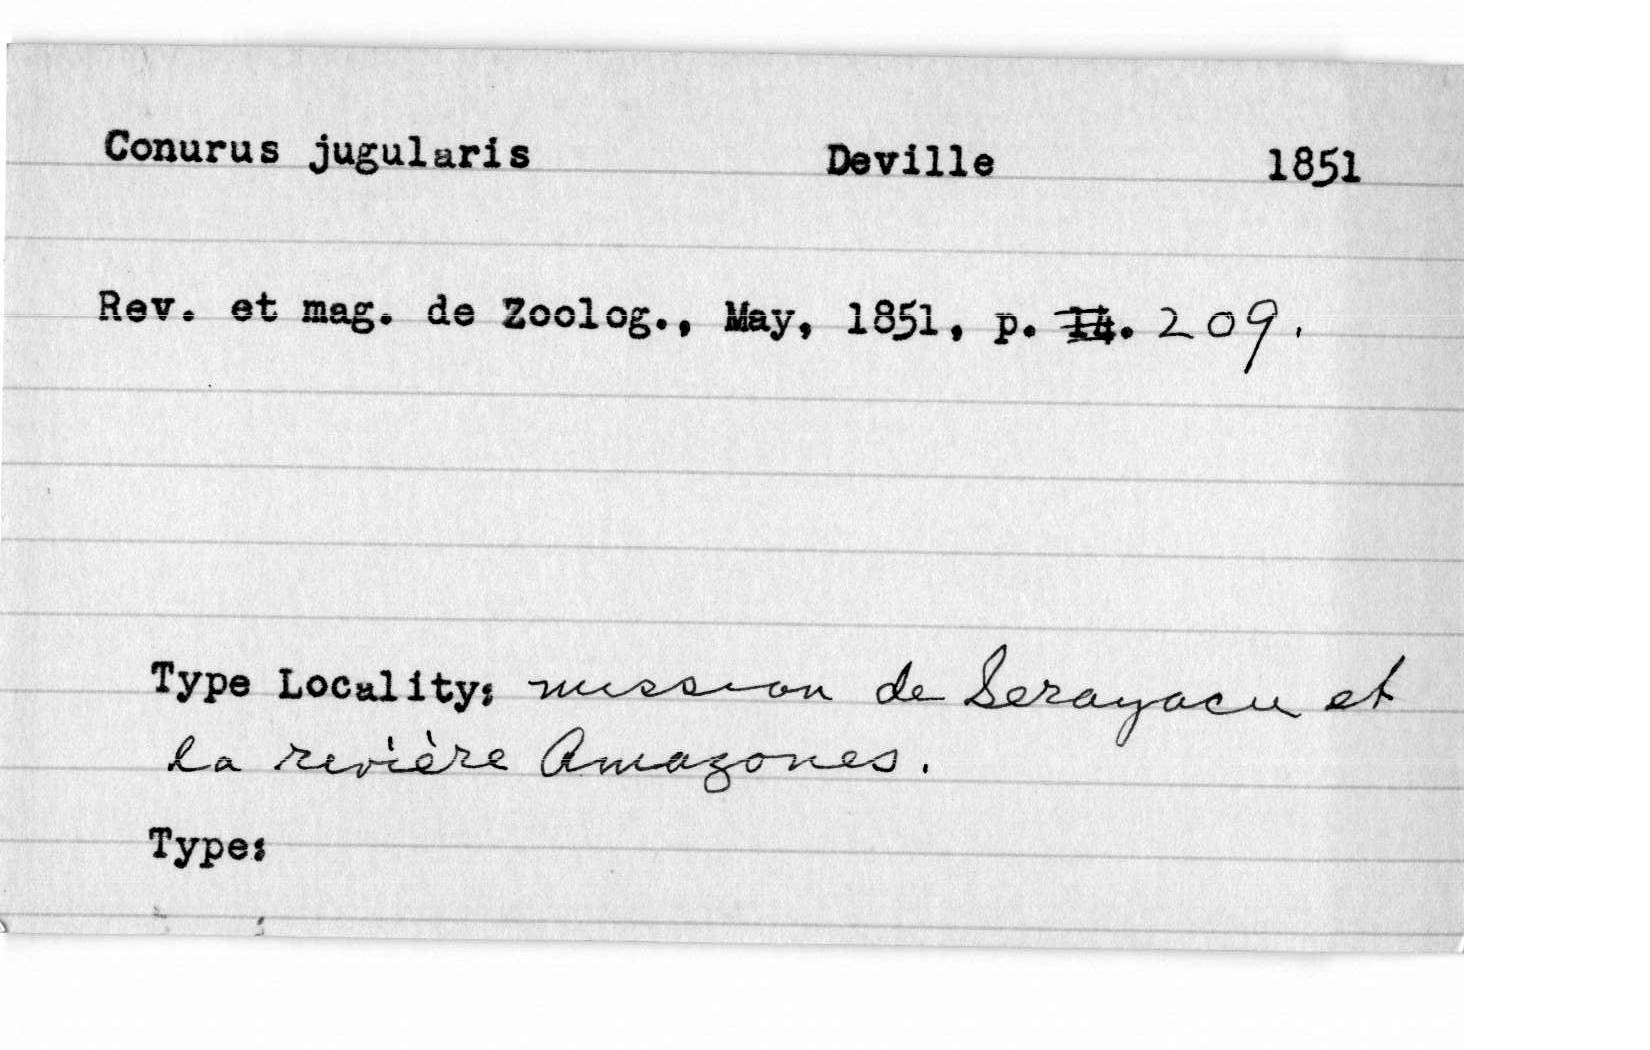 Conurus jugularis Deville 1851
Rev. et mag. de Zoolog., May, 1851, p. 14. 209.
Type Locality: mission de Serayacu et
la revière Amazones.
Type: